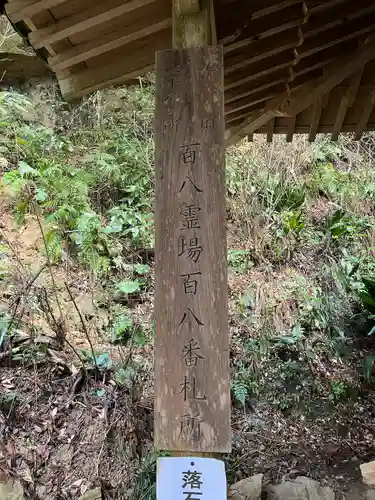 百八霊場百八番札所
落石